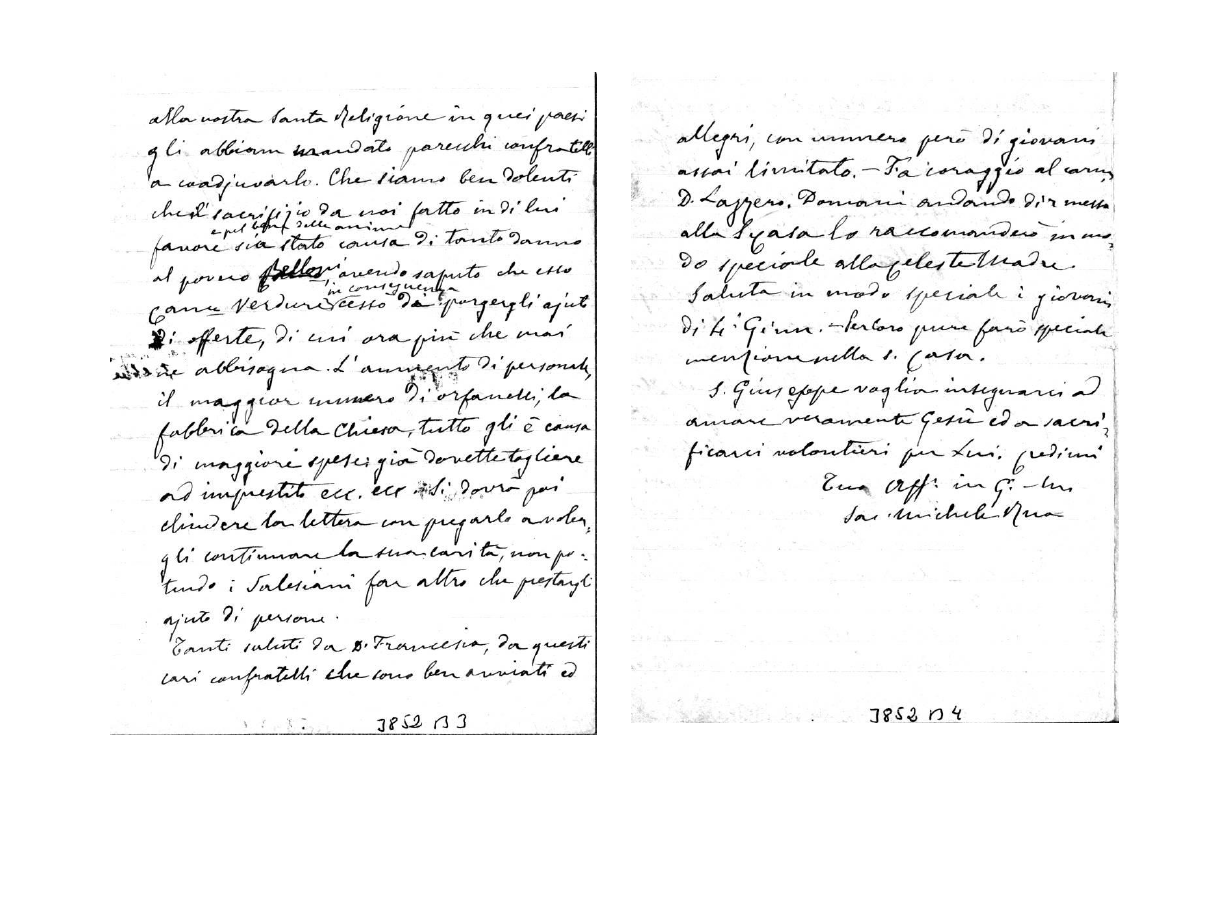 alla nostra Santa Religione in quei paesi
gli abbiam mandato parecchi confratelli
a coadjuvarlo. Che siamo ben dolenti
che il sacrifizio da noi fatto in di lui
e pel delle anime
favore sia stato causa di tanto danno
al povero Belloni, avendo saputo che esso
in conseguenza
Can.co Verdure cessò di porgergli ajuti
di offerte, di cui ora più che mai
ne abbisogna. L'aumento di personale,
il maggior numero di orfanelli, la
fabbrica della Chiesa, tutto gli è causa
di maggiori spese; già dovette togliere
ad imprestito ecc. ecc. Si dovrà poi
chiudere la lettera con pregarlo a voler,
gli continuare la sua carità, non po-
tendo i Salesiani far altro che prestargli
ajuto di persone.
Tanti saluti da D. Francesia, da questi
cari confratelli che sono ben avviati ed
J852 B 3
allegri, con numero però di giovani
assai limitato. - Fa coraggio al caro
D. Lazzero. Domani andando dir messa
alla S. Casa lo raccomanderò in mo-
do speciale alla Celeste Madre.
Saluta in modo speciale i giovani
di 4.a Ginn. - Per loro pure farò speciale
menzione nella S. Casa.
S. Giuseppe voglia insegnarci ad
amare veramente Gesù ed a sacri-
ficarci volontieri per Lui. Credimi
Tuo Aff. in G. 
Sac. Michele Rua
J852 B 4